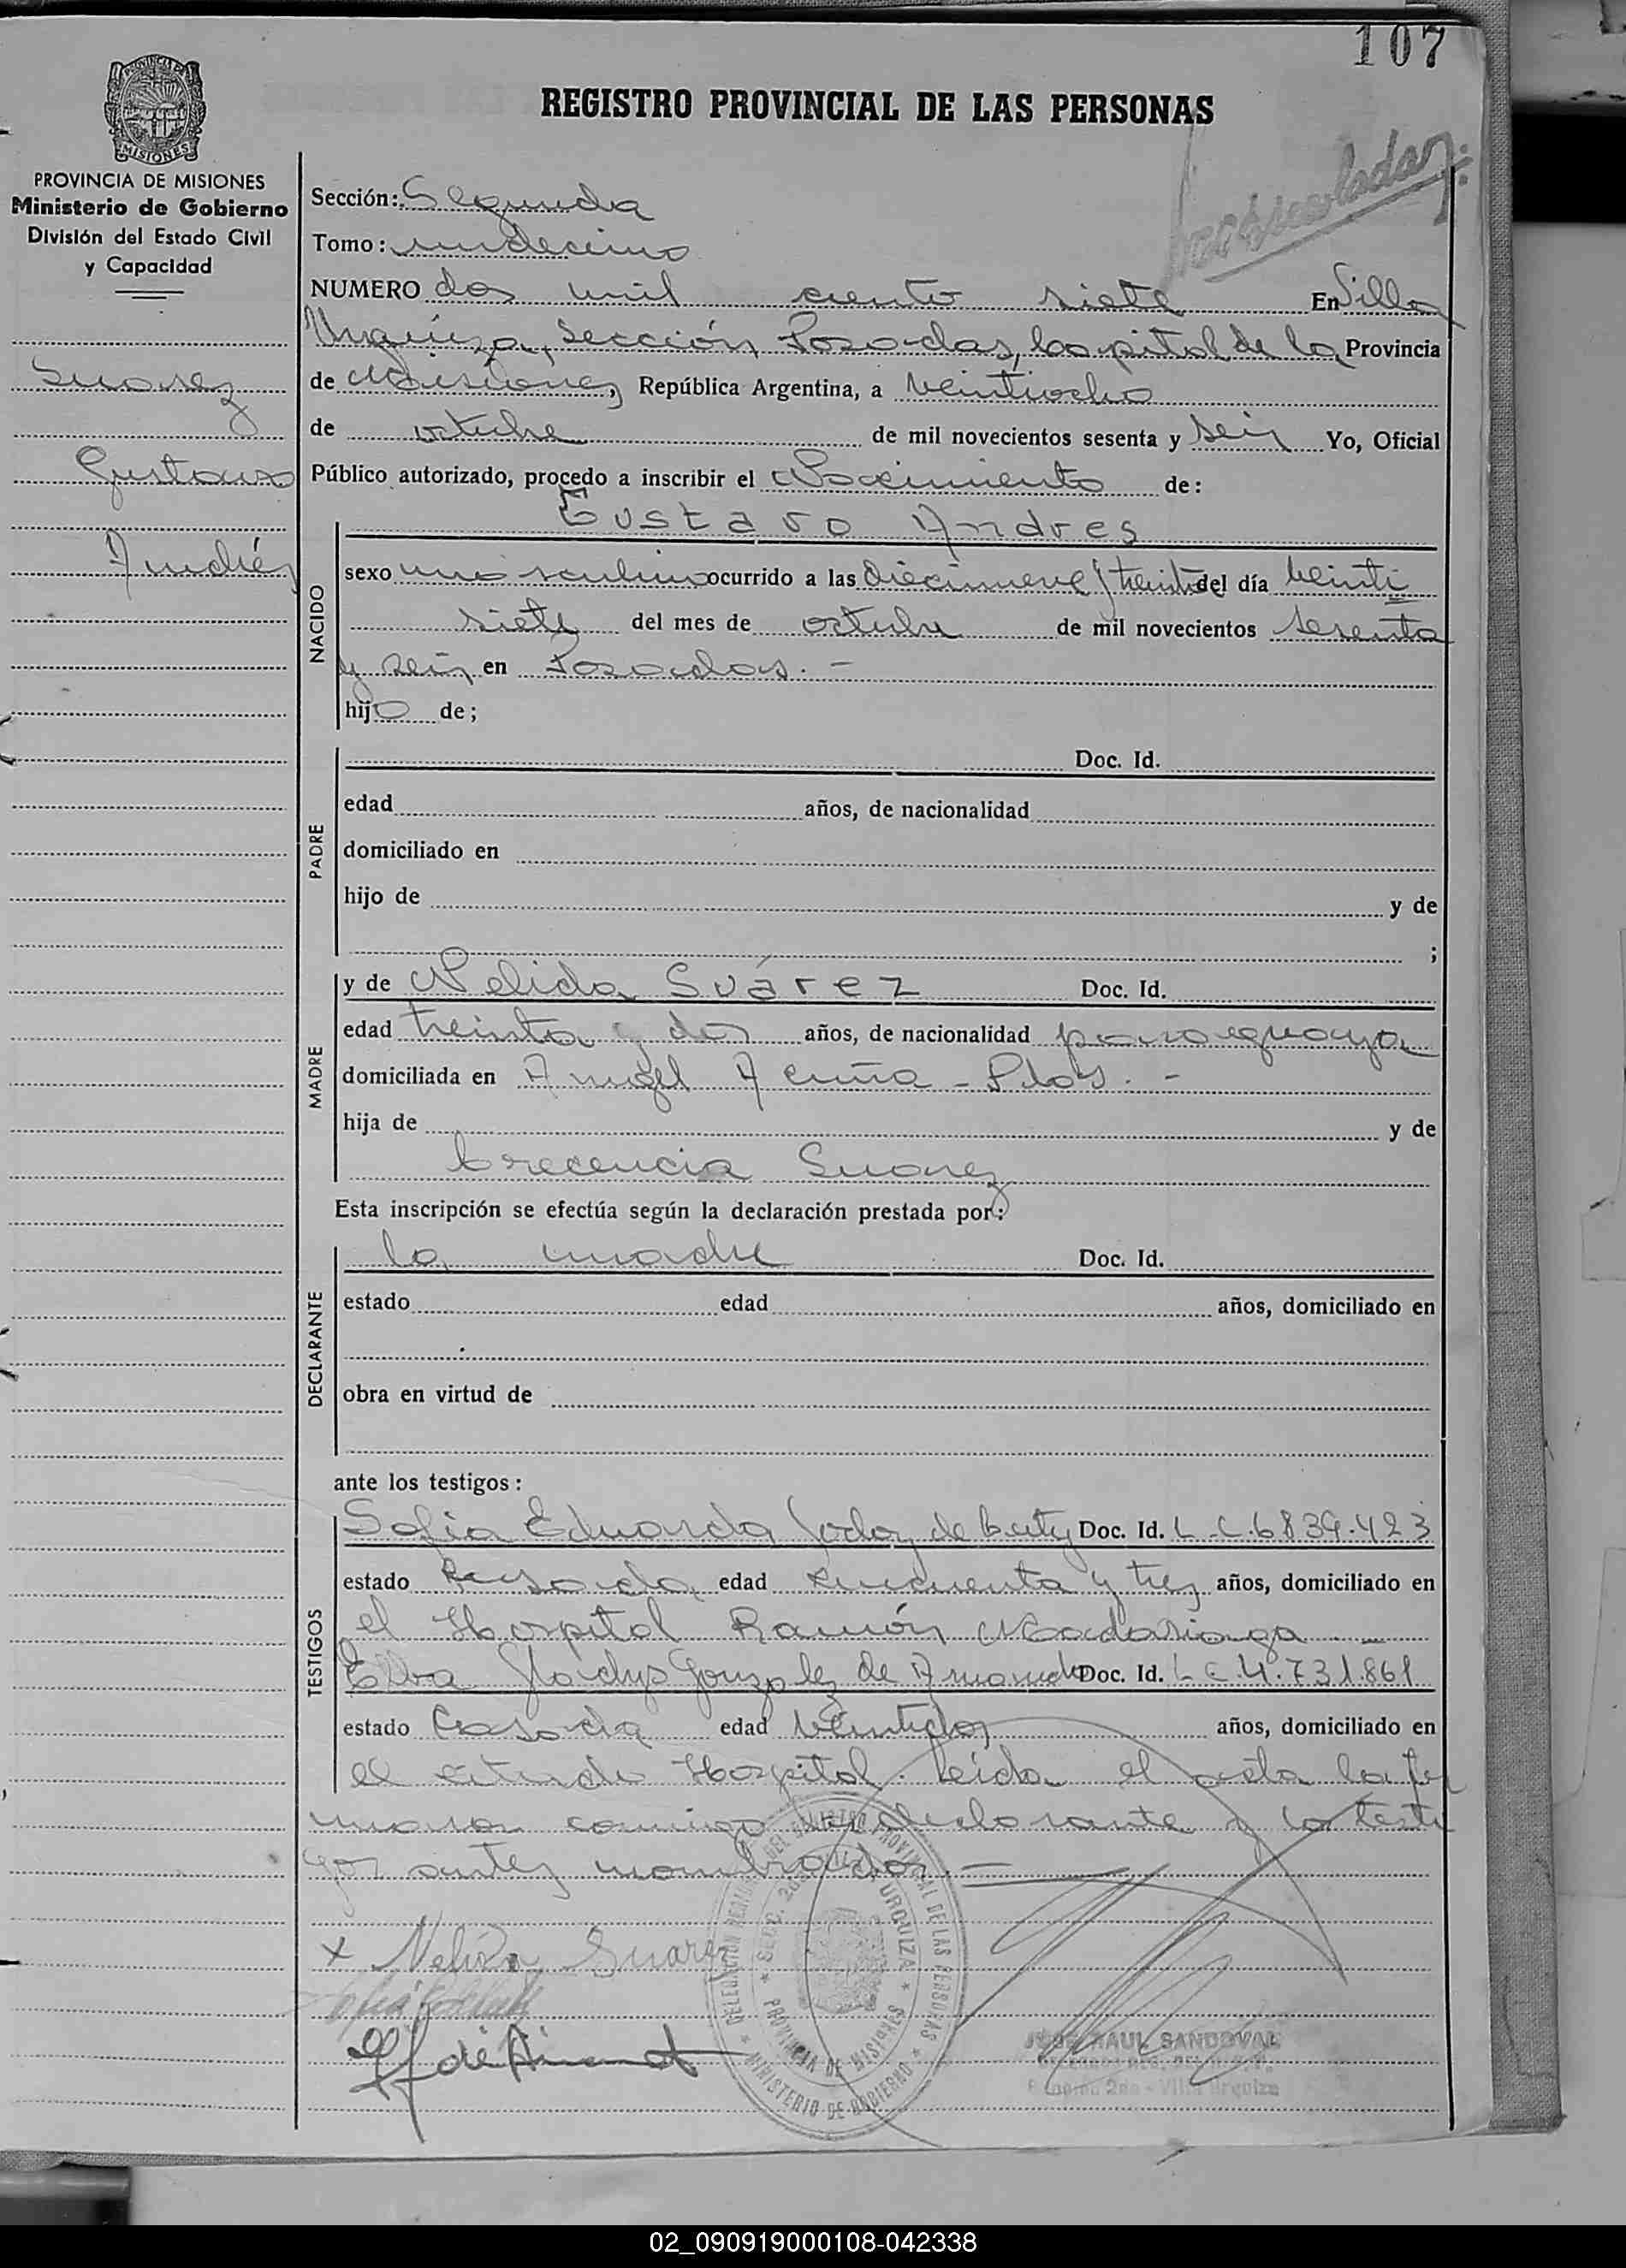 107
REGISTRO PROVINCIAL DE LAS PERSONAS
MISIONES
PROVINCIA DE MISIONES
Ministerio de Gobierno
División del Estado Civil
y Capacidad
Suarez
Gustavo
Andrés
Sección: Segunda
Tomo: undecimo
NUMERO dos mil ciento siete En Villa
Urquiza, Sección Posadas, Capital de la Provincia
de Misiones, República Argentina, a veintiocho
de octubre de mil novecientos sesenta y seis Yo, Oficial
Público autorizado, procedo a inscribir el Nacimiento de:
Gustavo Andres
NACIDO
sexo masculino ocurrido a las diecinueve y treinta del día veinti
siete del mes de octubre de mil novecientos sesenta
y seis en Posadas. -
hijo de;
PADRE
Doc. Id.
edad años, de nacionalidad
domiciliado en
hijo de y de
;
MADRE
y de Nelida Suárez Doc. Id.
edad treinta y dos años, de nacionalidad paraguaya
domiciliada en Angel Acuña - Pdas. -
hija de y de
Crecencia Suarez
Esta inscripción se efectúa según la declaración prestada por:
DECLARANTE
la madre Doc. Id.
estado edad años, domiciliado en
obra en virtud de
ante los testigos:
TESTIGOS
Sofia Eduarda de Doc. Id. L.C. 6839.423
estado Casada edad cincuenta y tres años, domiciliado en
el Hospital Ramón Madariaga
Elba Gladys Gonzalez de Doc. Id. L C 4.731.861
estado Casada edad veintidos años, domiciliado en
el citado Hospital. Leida el acta la fir
maron conmigo el declarante y los testi
gos antes nombrados. -
x Nelida Suarez
DELEGACION DEL REGISTRO PROVINCIAL DE LAS PERSONAS
URQUIZA
PROVINCIA DE MISIONES
MINISTERIO DE GOBIERNO
RAUL SANDOVAL
2da - Villa Urquiza
02_090919000108-042338